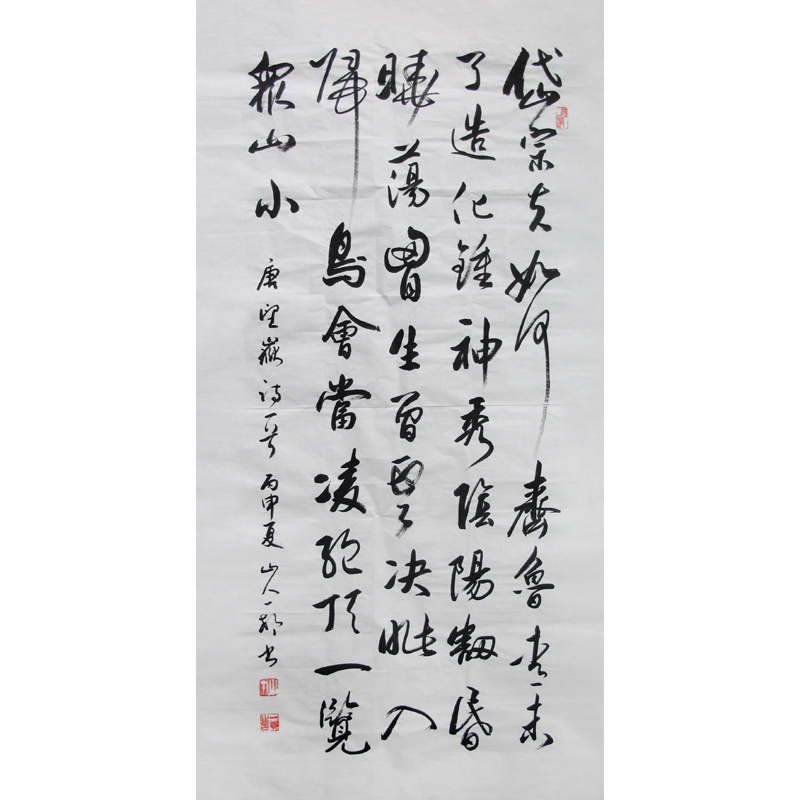 岱宗夫如何齊魯青未
了造化鍾神秀陰陽割昏
曉蕩胷生曾雲決眥入
歸鳥會當凌絕頂一覽
眾山小
唐望嶽詩一首 丙申夏 山人一书